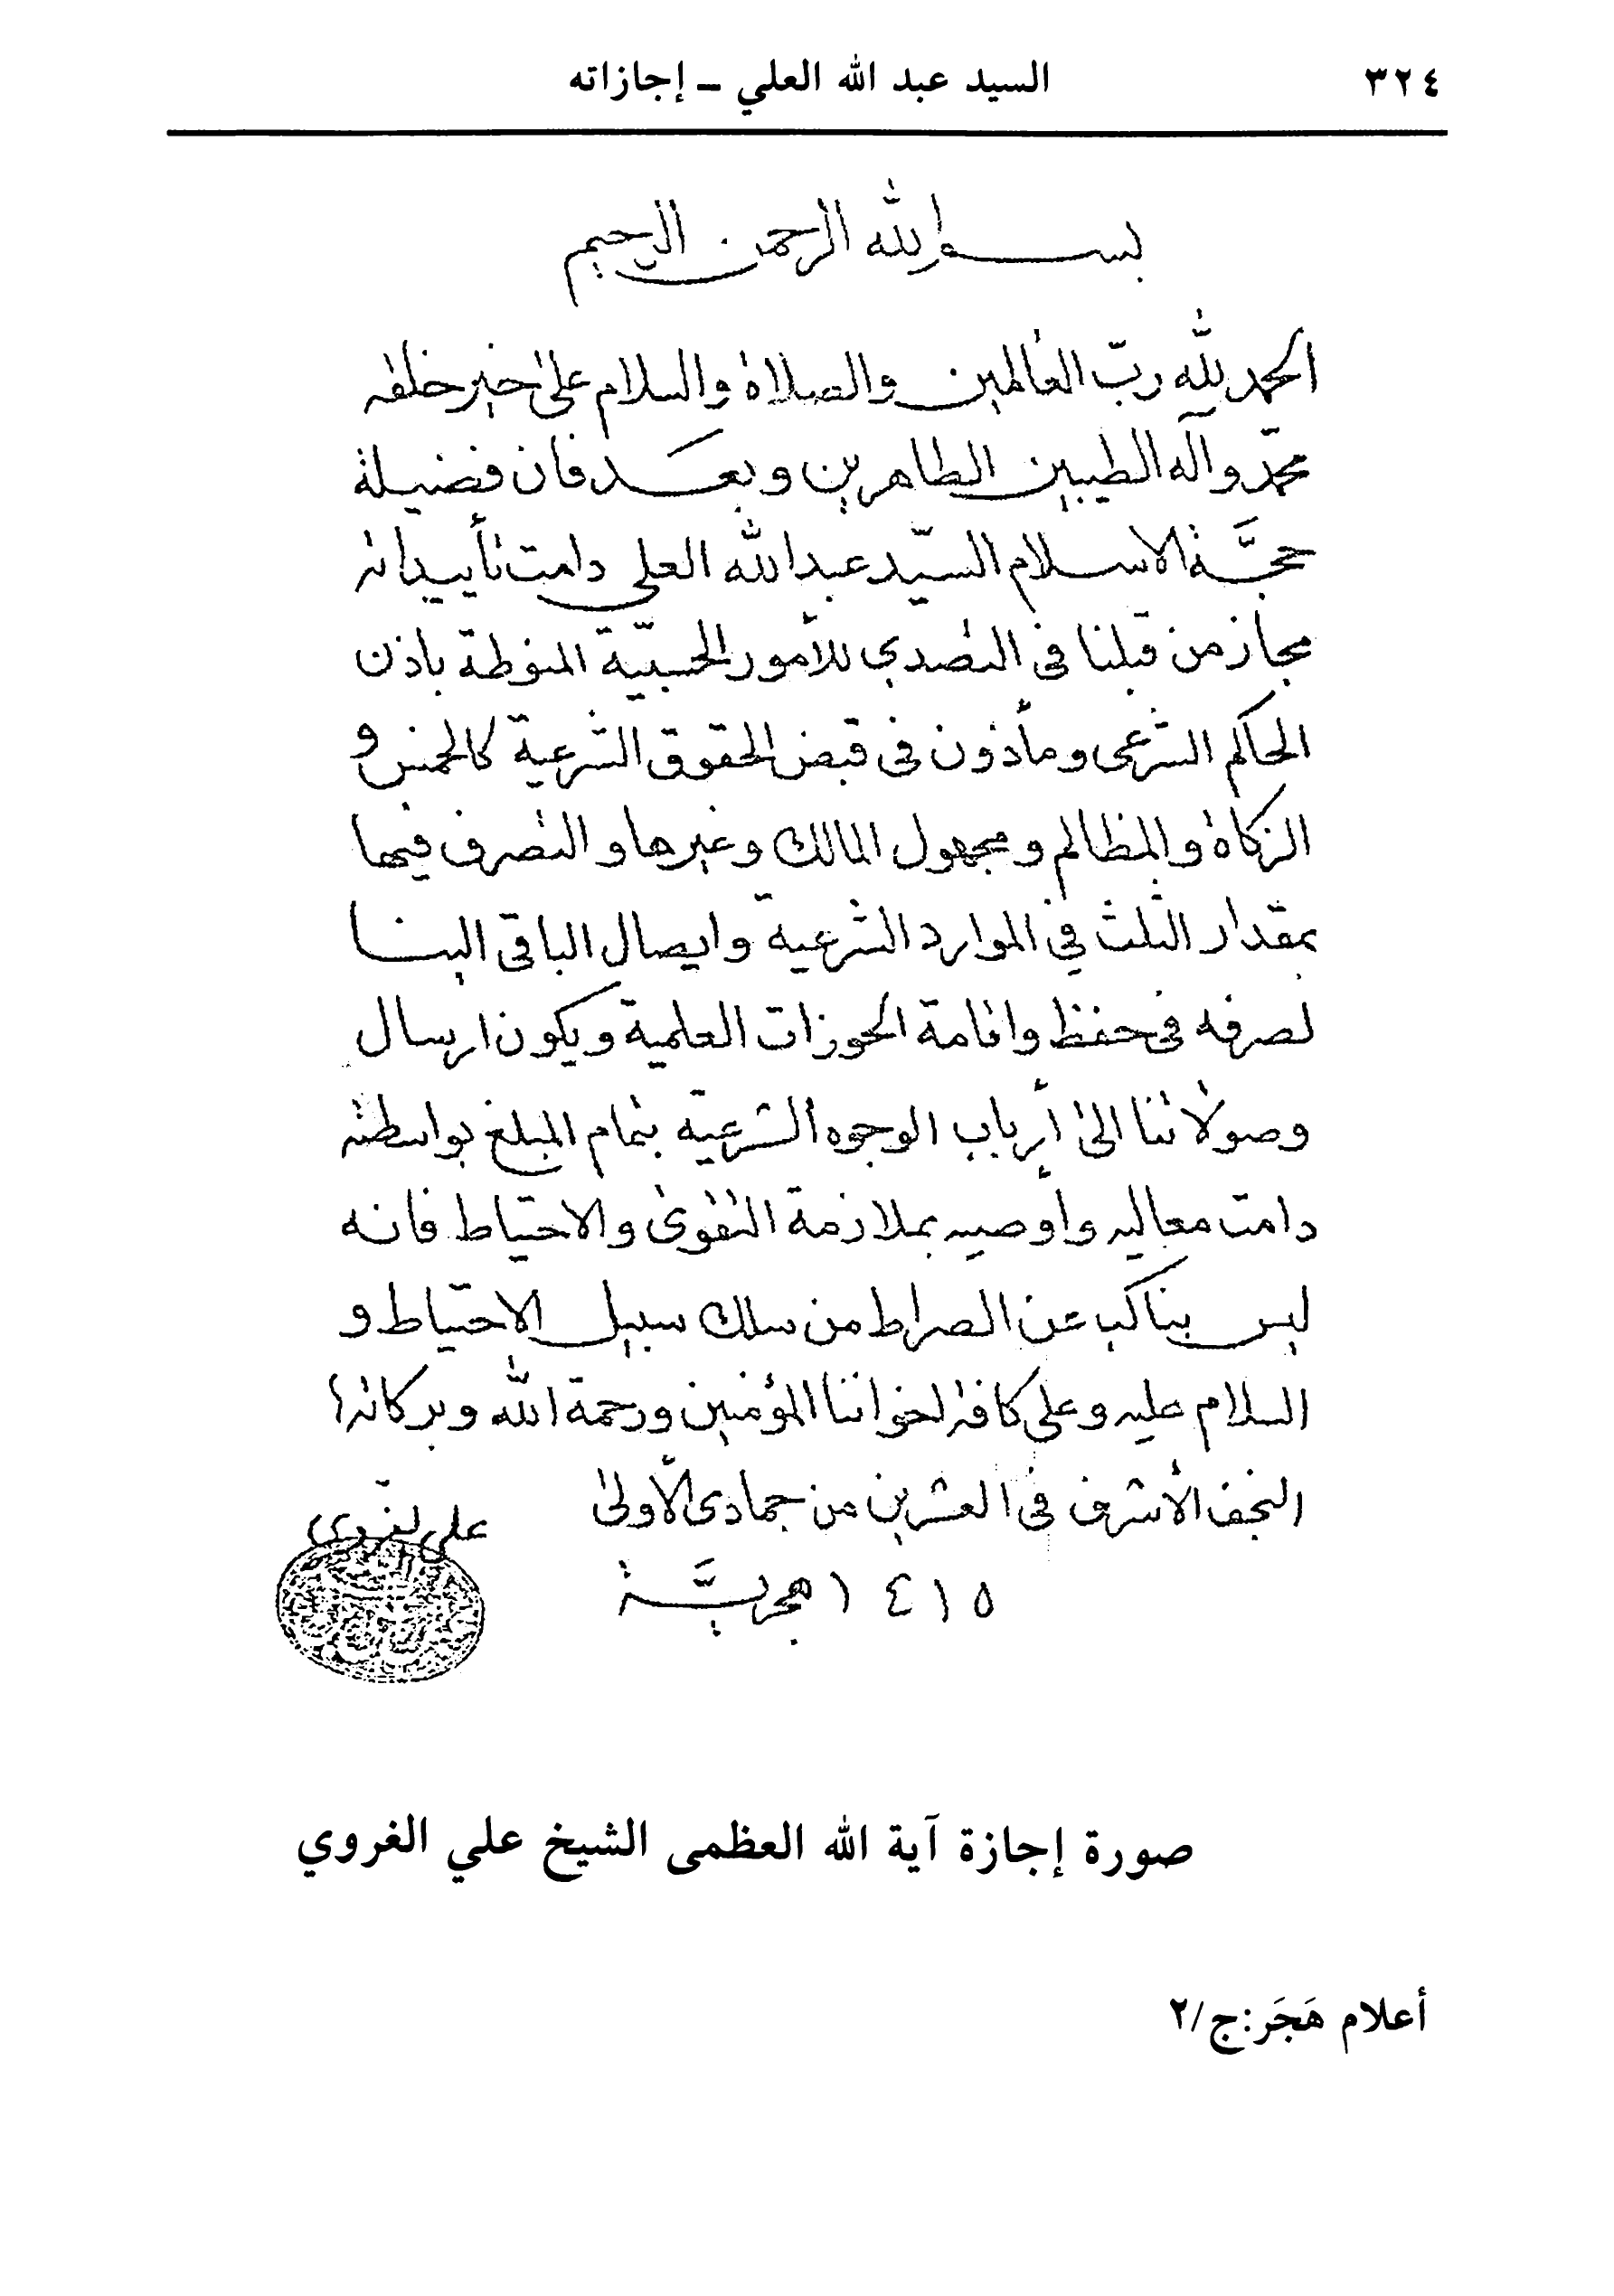 ٣٢٤
السيد عبد الله العلي ـ إجازاته
بسم الله الرحمن الرحيم
الحمد لله ربّ العالمين والصلاة والسلام على خير خلقه
محمّد وآله الطيبين الطاهرين وبعد فان فضيلة
حجَّة الاسلام السيّد عبد الله العلي دامت تأييداته
مجاز من قبلنا في التصدي للأمور الحسبيّة المنوطة باذن
الحاكم الشرعي ومأذون في قبض الحقوق الشرعية كالخمس و
الزكاة والمظالم ومجهول المالك وغيرها والتصرف فيها
بمقدار الثلث في الموارد الشرعية وايصال الباقي الينا
لصرفه في حفظ واقامة الحوزات العلمية ويكون ارسال
وصولاتنا الى أرباب الوجوه الشرعية بتمام المبلغ بواسطته
دامت معاليه وأوصيه بملازمة التقوى والاحتياط فانه
ليس بناكب عن الصراط من سلك سبيل الاحتياط و
السلام عليه وعلى كافة اخواننا المؤمنين ورحمة الله وبركاته
النجف الأشرف في العشرين من جمادى الأولى
١٤١٥ هجريَّة
علي الغروي
صورة إجازة آية الله العظمى الشيخ علي الغروي
أعلام هَجَر:ج/٢